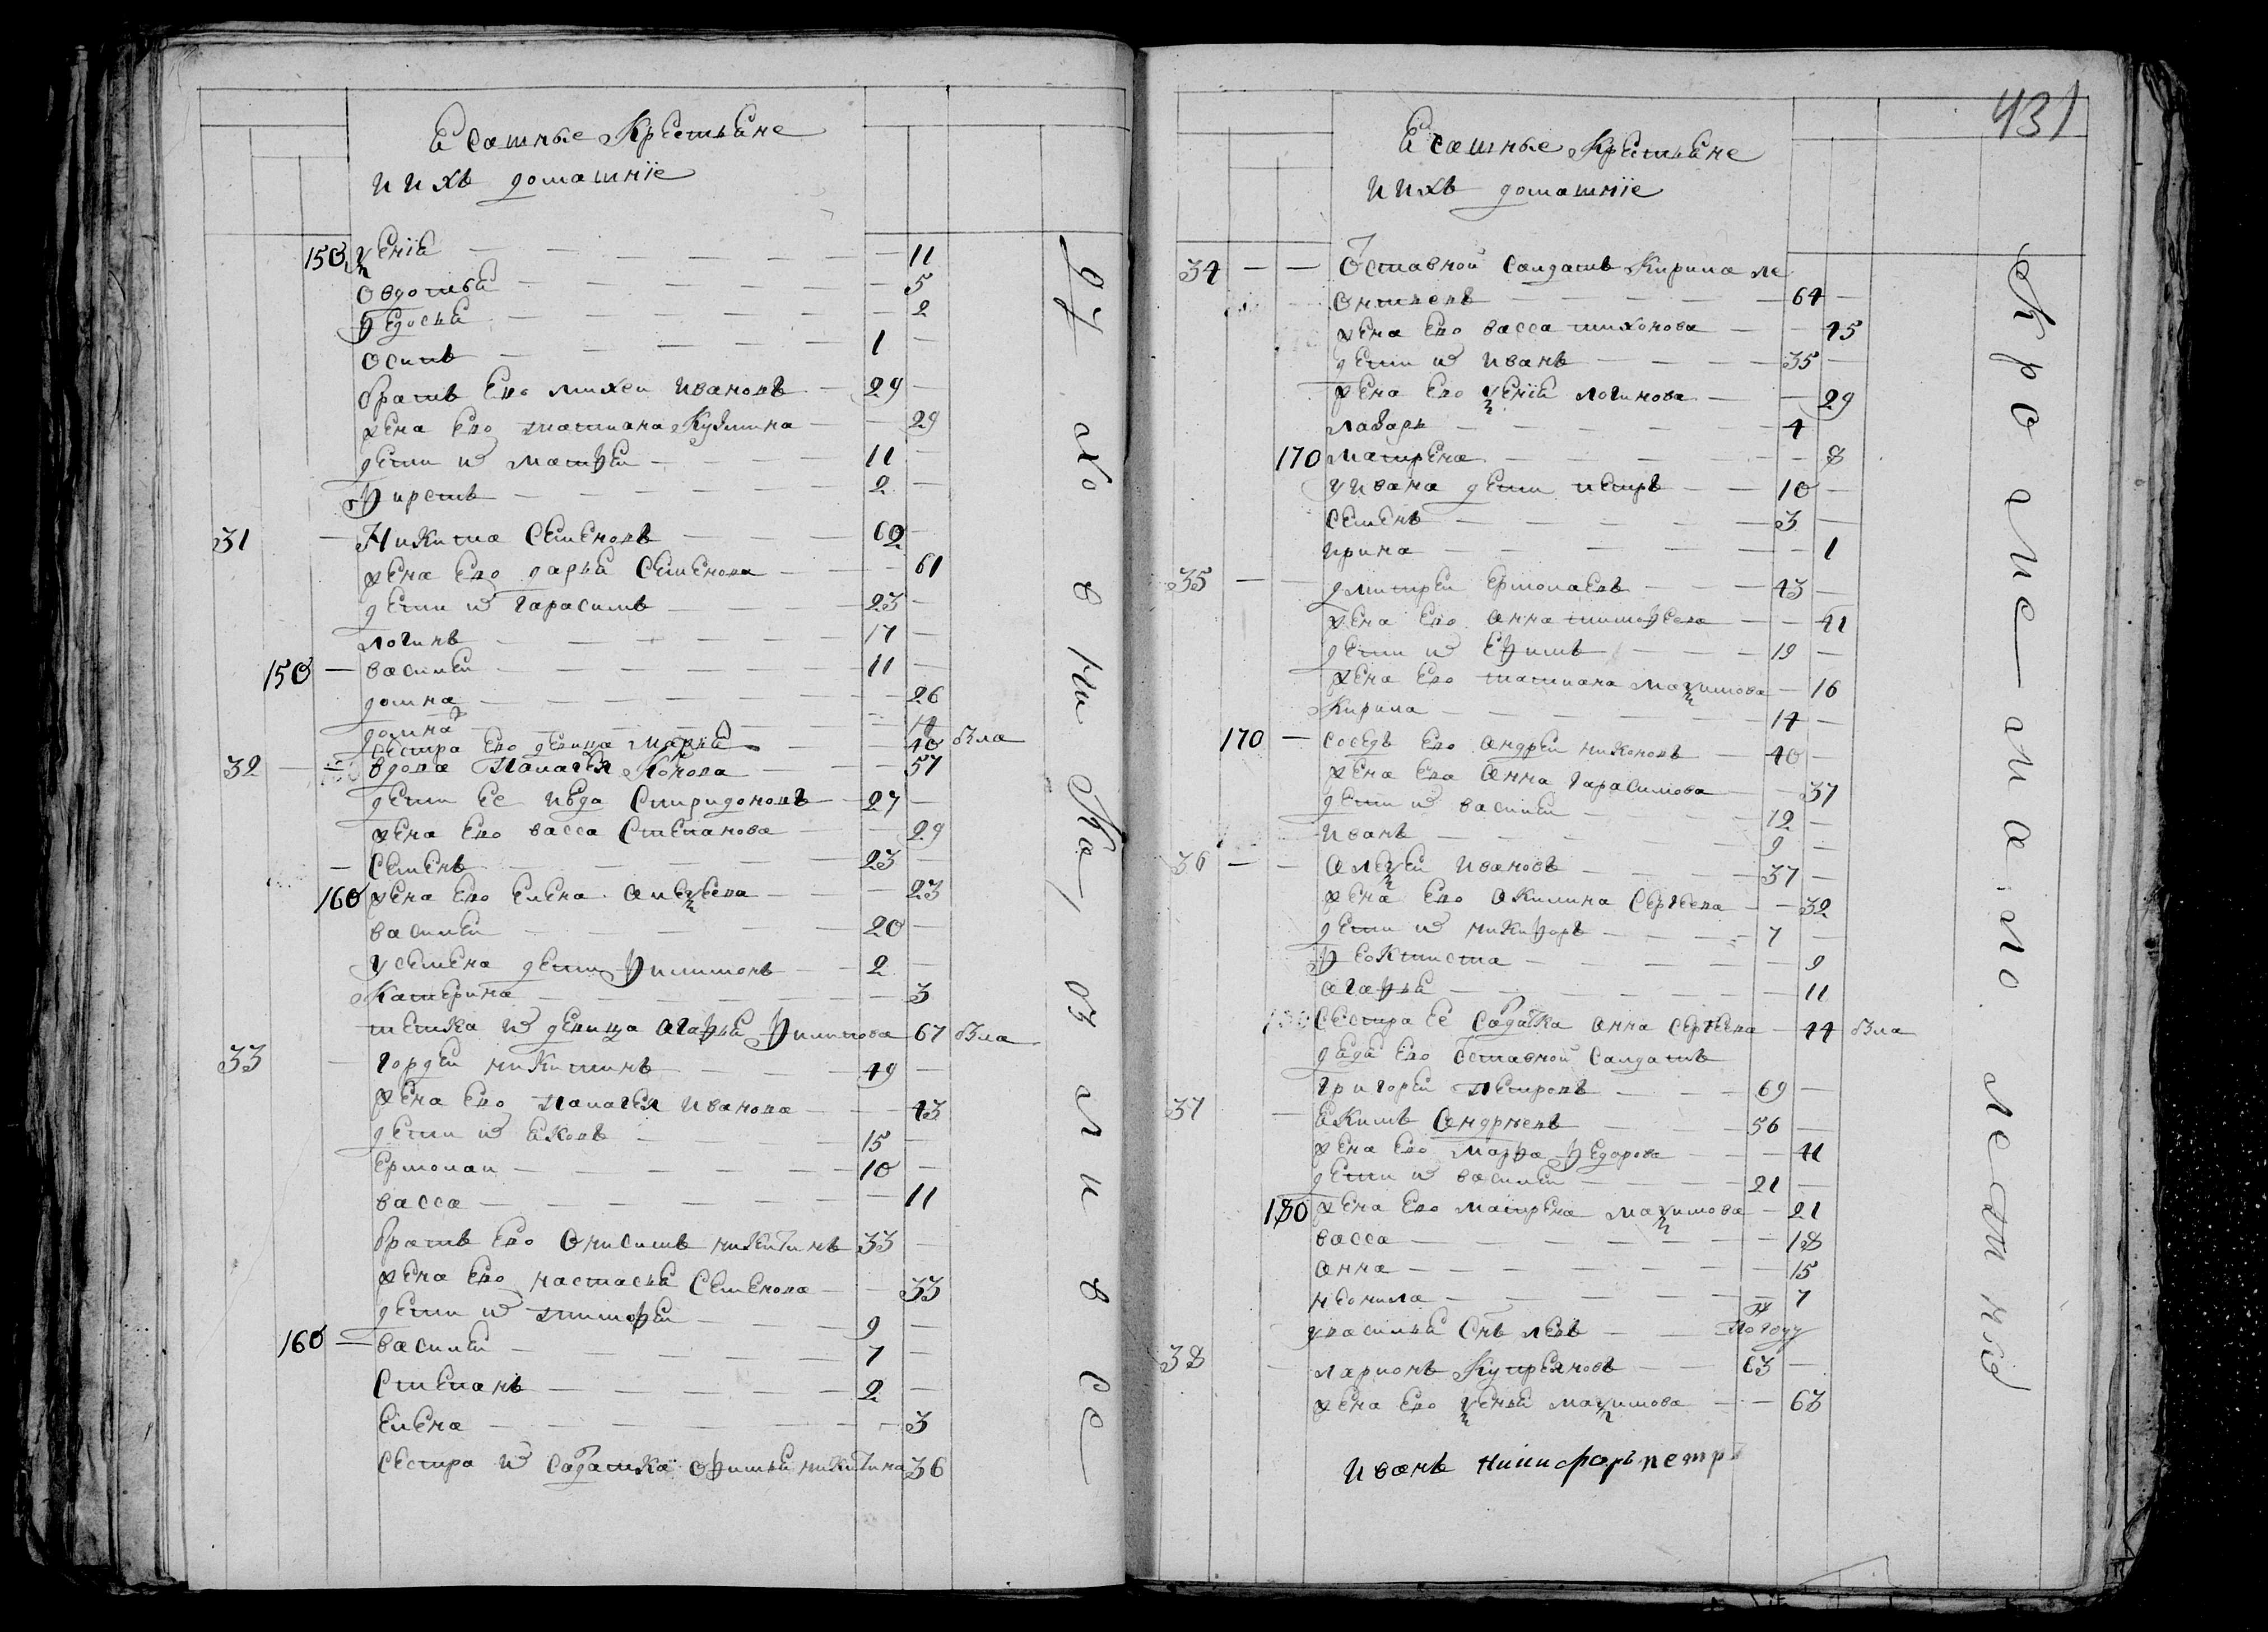 Ясашные Крестьяне
и ихъ домашнїе
150 Ѯенїя — 11
Овдотья — 5
Ѳедосья — 2
Осипъ — 1 —
братъ Ево михеи Ивановъ — 29 —
жена Ево татиана Кузмина — 29
дети их матѳеи — 11 —
Ѳирстъ — 2 —
31 — Никита Семеновъ — 62 —
жена Ево дарья Семенова — 61
дети их Гарасимъ — 23 —
логинъ — 17 —
150 — василеи — 11 —
домна — 26
домна
сестра Ево девица Марья — 40 бѣла
32 — вдова Палагея Конова — 57
дети Ее Спиридоновъ — 27 —
жена Ево васса Степанова — 29
Семенъ — 23 —
160 жена Ево Елена Алеѯеева — 23
василеи — 20 —
у семена дети Ѳилимонъ — 2 —
Катерина — 3
тетка их девица Агаѳья Ѳилипова — 67 бѣла
33 — Гордеи никитинъ — 49 —
жена Ево Палагея Иванова — 43
дети их Яковъ — 15 —
Ермолаи — 10 —
васса — 11
братъ Ево Онисимъ никитинъ 33 —
жена Ево настасья Семенова — 33
дети их тимоѳеи — 9 —
160 — василеи — 7 —
Степанъ — 2 —
Елена — 3
сестра их салдатка Оѳимья никитина 36
431
Ясашные Крестьяне
и ихъ домашнїе
34 — — Оставной салдатъ Кирила ле
онтьевъ — 64 —
жена Ево васса тихонова — 45
дети их Иванъ — 35 —
жена Ево Ѯенїя логинова — 29
лазарь — 4
170 матрена — 8
у Ивана дети петръ — 10 —
семенъ — 3 —
ирина — 1
35 — — дмитреи Ермолаевъ — 43 —
жена Ево Анна тимоѳеева — 41
дети их Еѳимъ — 19 —
жена Ево татиана маѯимова — 16
Кирила — 14 —
170 — соседъ Ево Андреи никоновъ — 40 —
жена Ево Анна гарасимова — 37
дети их василеи — 12 —
Иванъ — 9 —
36 — — Алеѯеи Ивановъ — 37 —
жена Ево Акилина Сергеева — 32
дети их никиѳоръ — 7 —
Ѳеоктиста — 9
Агаѳья — 11
Сестра Ее салдатка Анна Сергеева — 44 бѣла
дядя Ево Оставной Салдатъ
Григореи Петровъ — 69 —
37 — Якимъ Андрѣевъ — 56 —
жена Ево марѳа Ѳедорова — 41
дети их василеи — 21 —
180 жена Ево матрена маѯимова — 21
васса — 18
Анна — 15
неонила — 7
у василья Снъ левъ — полгоду
38 — ларионъ Купреяновъ — 63 —
жена Ево Ѯенья маѯимова — 63
Иванъ Никифоръ петр